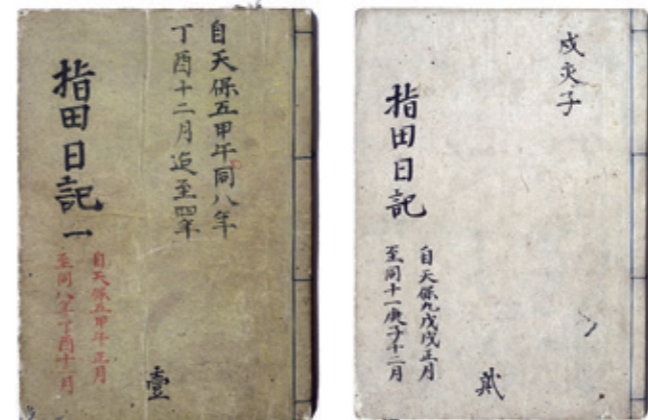 自天保五甲午同八年
丁酉十二月迄至四年
指田日記 一
自天保五甲午正月
至同八年丁酉十二月
壹
戌亥子
指田日記
自天保九戊戌正月
至同十一庚子十二月
貮